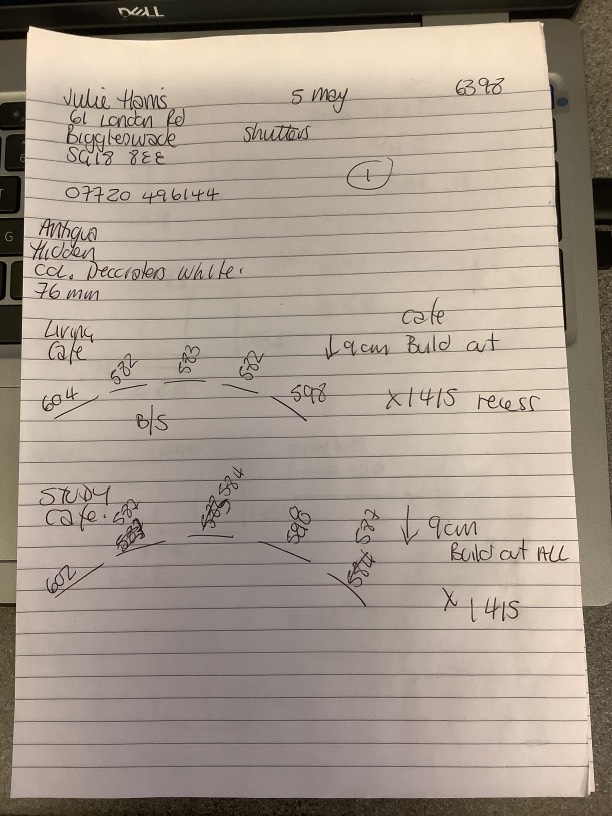 DELL
Julie Harris 5 May 6398
61 London Rd
Biggleswade Shutters
SG18 8EE
1
07720 496144
Antigua
Hidden
Col. Decorators White.
76 mm
Living cafe
Cafe ↓ 9cm Build out
582 583 582
604 598 X 1415 recess
B/S
STUDY 584
Cafe. 587 598 587 ↓ 9cm
Build out ALL
602 584
X 1415